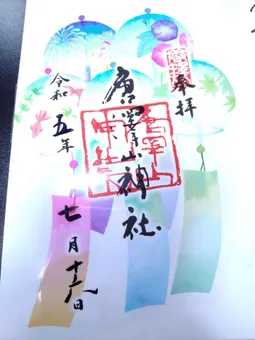 奉拝
唐澤山神社
令和五年
七月十日